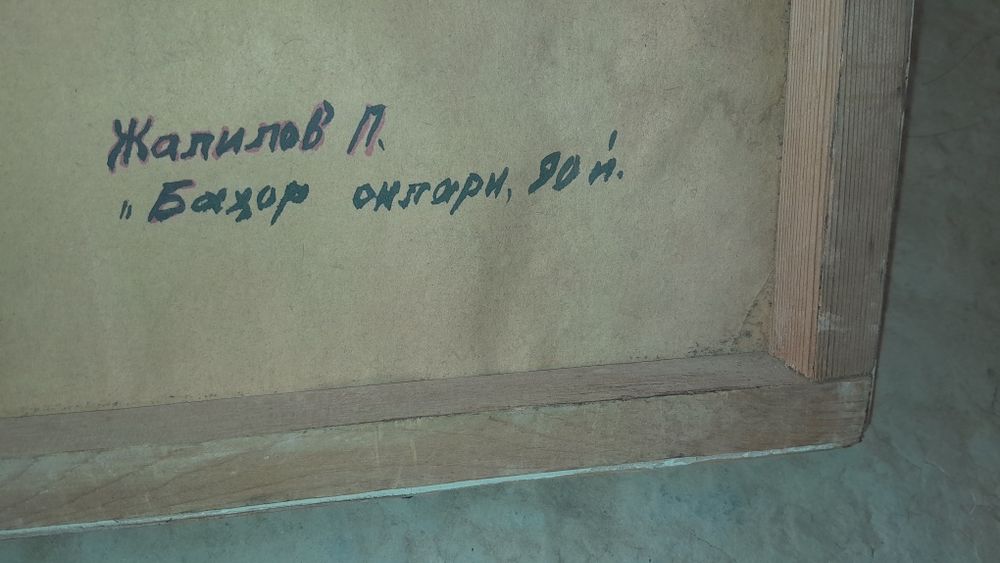 Жалилов П.
„Баҳор онлари, 90 й.